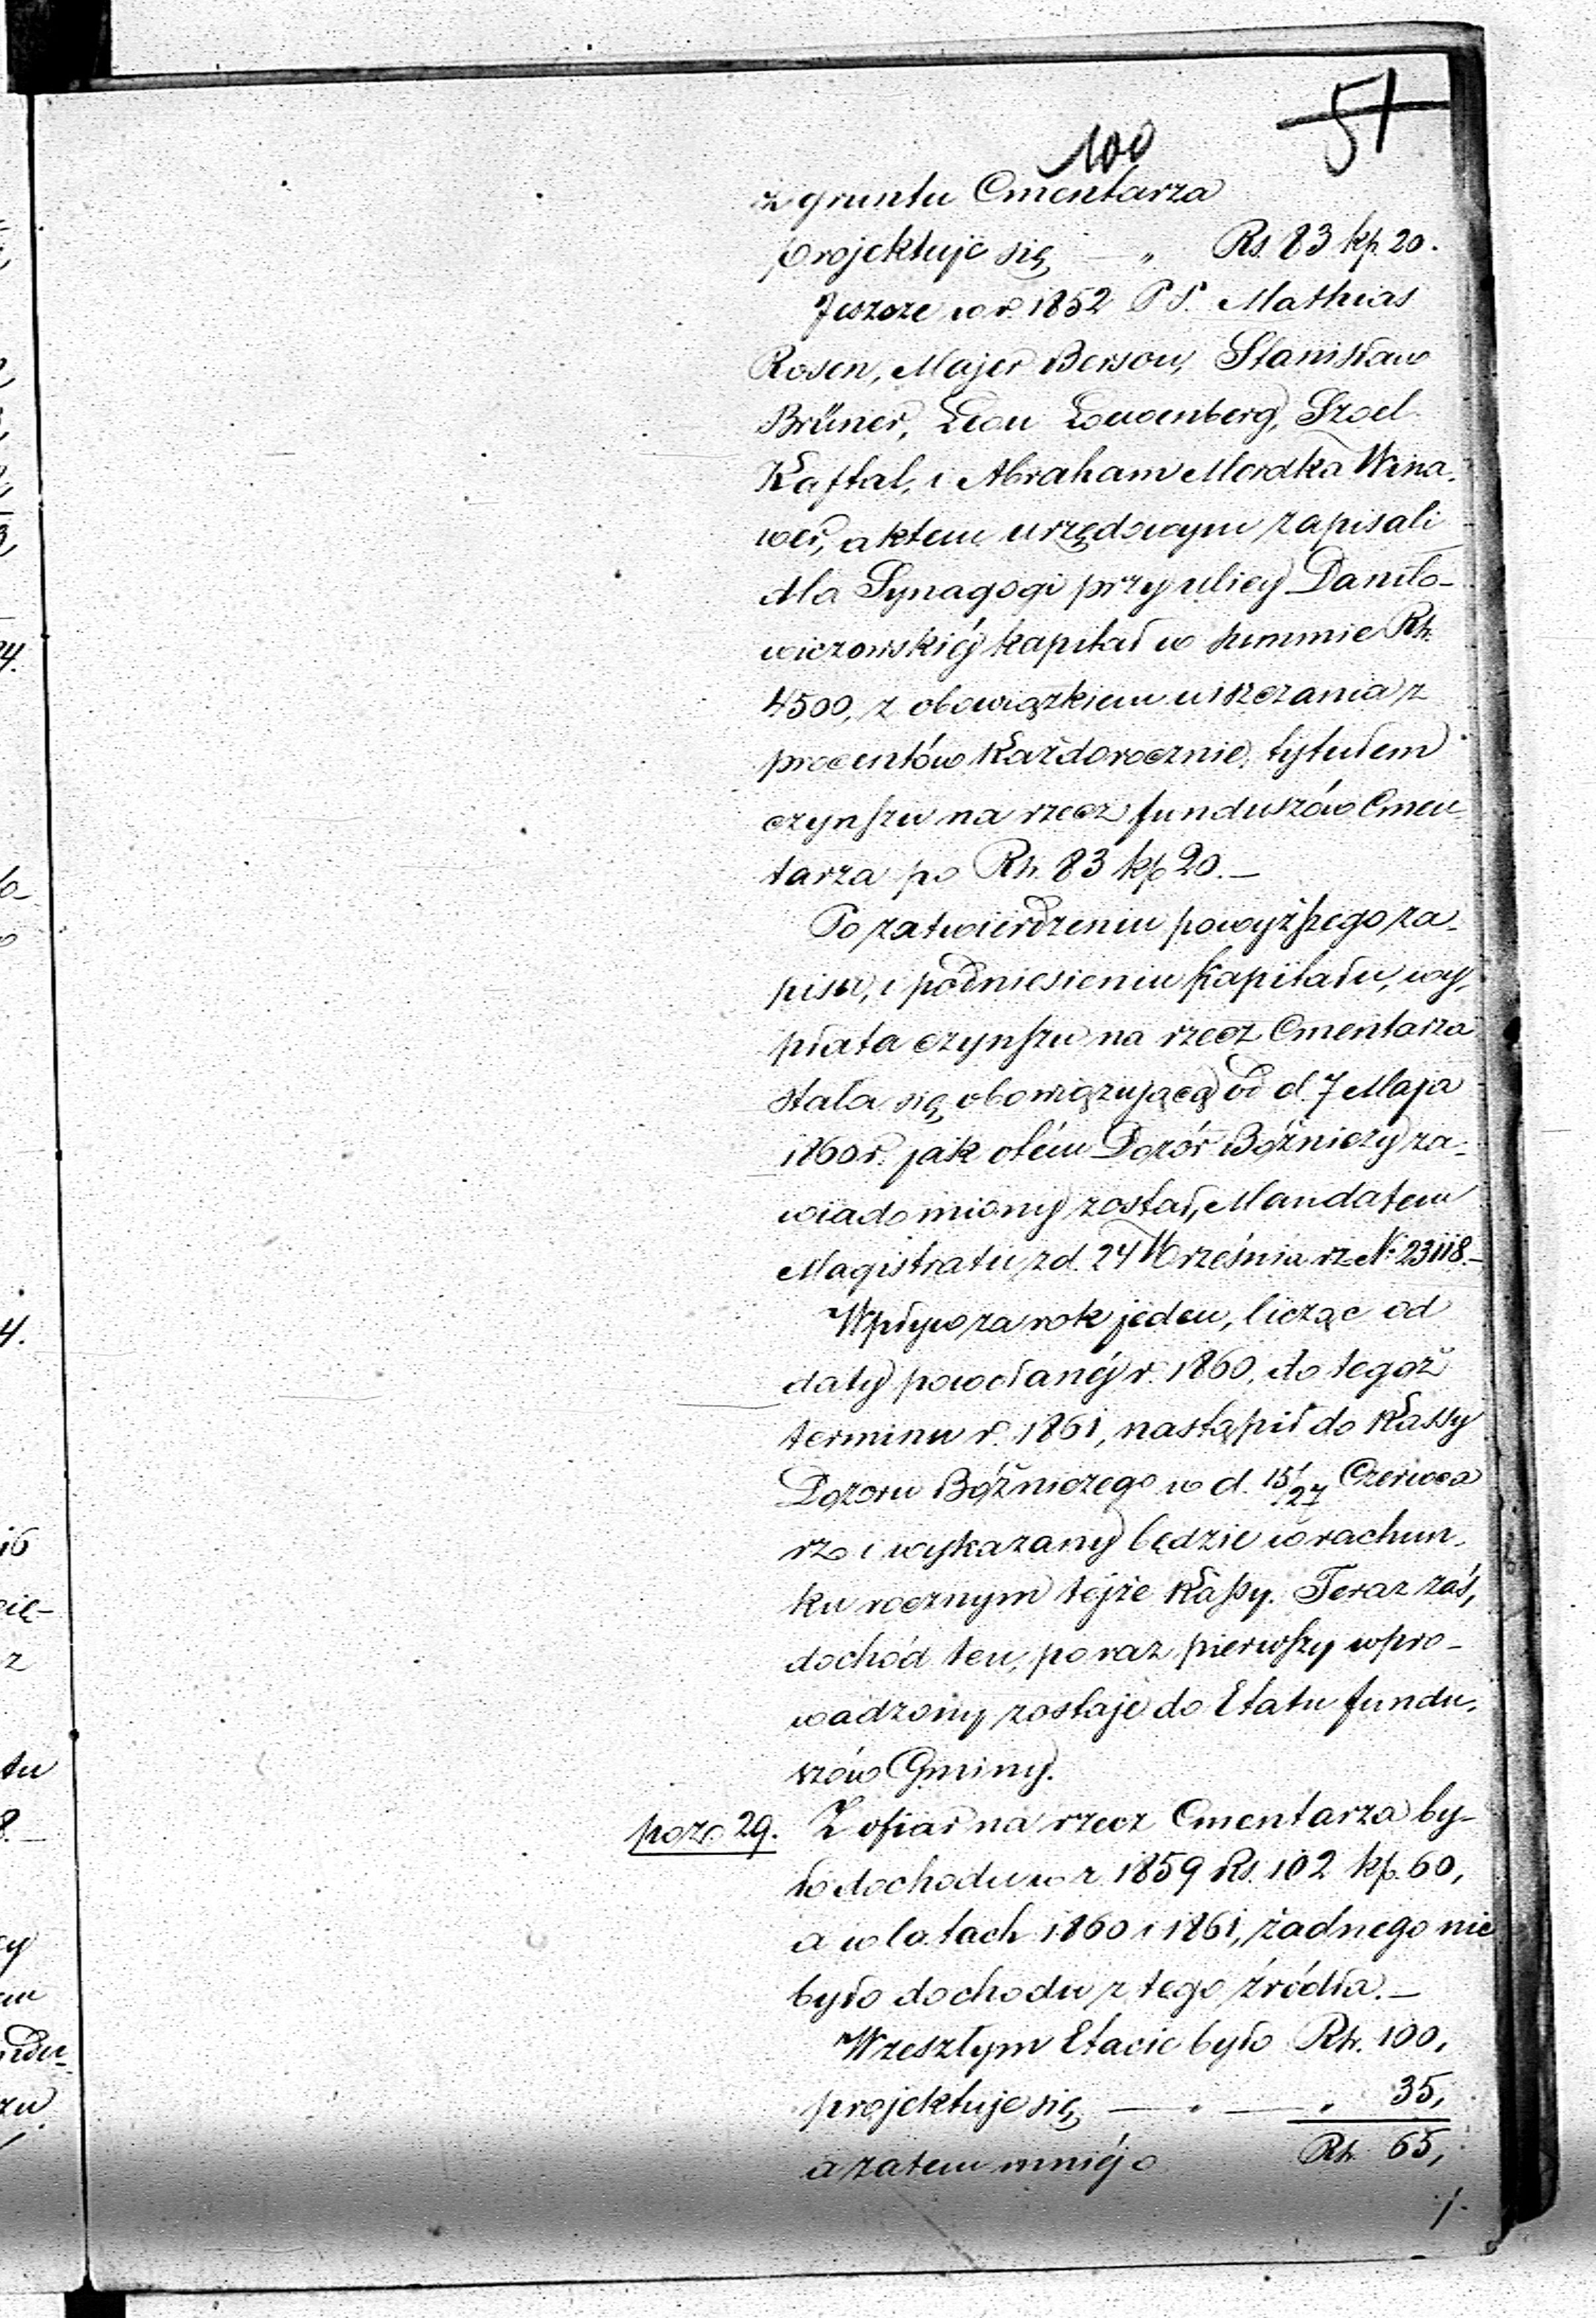 51
100
z gruntu Cmentarza
projektuje się — „ Rs. 83 kp. 20.
Jeszcze w r. 1852 PP. Mathias
Rosen, Majer Berson, Stanisław
Brüner, Leon Loewenberg, Szoel
Kaftal, i Abraham Mordka Wina-
wer, aktem urzędowym zapisali
dla Synagogi przy ulicy Daniło-
wiczowskiéj kapitał w summie Rs.
4500, z obowiązkiem uiszczania z
procentów każdorocznie, tytułem
czynszu na rzecz funduszów Cmen-
tarza po Rs. 83 kp 20. —
Po zatwierdzeniu powyższego za-
pisu, i podniesieniu kapitału, wy-
płata czynszu na rzecz Cmentarza
stała się obowiązującą od d. 7 Maja
1860 r. jak o tém Dozór Bóżniczy za-
wiadomiony został, Mandatem
Magistratu z d. 24 Września rz. N: 23118. —
Wpływ za rok jeden, licząc od
daty powołanéj r. 1860, do tegoż
terminu r. 1861, nastąpił do Kassy
Dozoru Bóżniczego w d. 15/27 Czerwca
rz i wykazany będzie w rachun-
ku rocznym tejże Kassy. Teraz zaś,
dochód ten, po raz pierwszy wpro-
wadzony zostaje do Etatu fundu-
szów Gminy.
poz. 29. Z ofiar na rzecz Cmentarza by-
ło dochodu w r. 1859 Rs. 102 kp. 60,
a w latach 1860 i 1861, żadnego nie
było dochodu z tego źródła. —
W zeszłym Etacie było Rs. 100,
projektuje się — „ — „ 35,
a zatem mniéj o Rs. 65,
./.